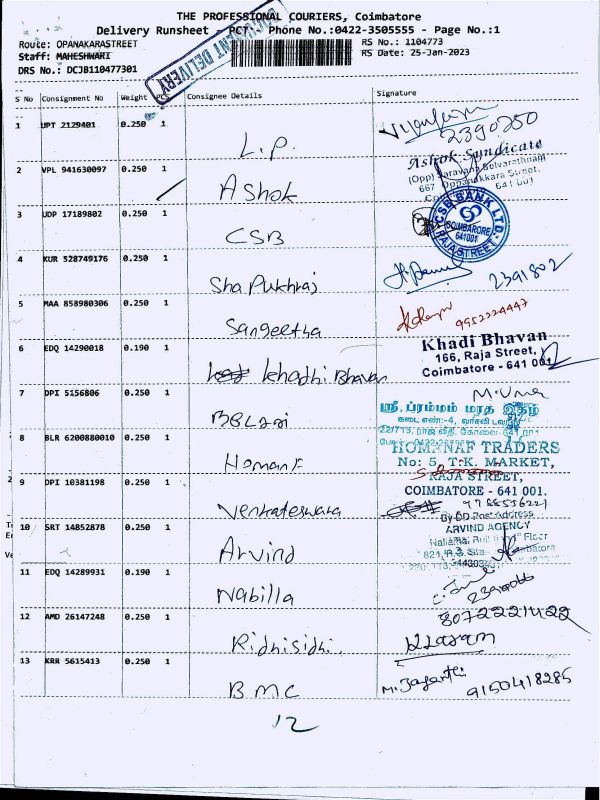 THE PROFESSIONAL COURIERS, Coimbatore
Delivery Runsheet - PCT, Phone No.:0422-3505555 - Page No.:1
DOCUMENT DELIVERY
Route: OPANAKARASTREET
RS No.: 1104773
Staff: MAHESHWARI
RS Date: 25-Jan-2023
DRS No.: DCJB110477301
S No Consignment No Weight PCS Consignee Details Signature
1 UPT 2129401 0.250 1 L.P. 2390250
2 VPL 941630097 0.250 1 Ashok
Ashok Syndicate
(Opp) Saravana Selvarathnam
667, Oppanakkara Street,
641 001
3 UDP 17189802 0.250 1 CSB
CSB BANK LTD.
COIMBATORE
641001
RAJA STREET
4 KUR 528749176 0.250 1 Sha Pukhraj 2391802
5 MAA 858980306 0.250 1 Sangeetha 9952224447
6 EDQ 14290018 0.190 1 Khadhi Bhavan
Khadi Bhavan
166, Raja Street,
Coimbatore - 641 001
7 DPI 5156806 0.250 1 M. Uma
ஸ்ரீ ப்ரம்மம் மரத இதழ்
கடை எண்:-4,
22/715, ராஜ வீதி, கோவை-641 001
8 BLR 6200880010 0.250 1 Homan F
HOMANAF TRADERS
No: 5, T.K. MARKET,
RAJA STREET,
COIMBATORE - 641 001.
9 DPI 10381198 0.250 1 Venkateswara 9788556221
10 SRT 14852878 0.250 1 Arvind
ARVIND AGENCY
11 EDQ 14289931 0.190 1 Nabilla
12 AMD 26147248 0.250 1 Ridhisidhi. 8072221422
13 KRR 5615413 0.250 1 BMC M. Jayanthi 9150418285
12